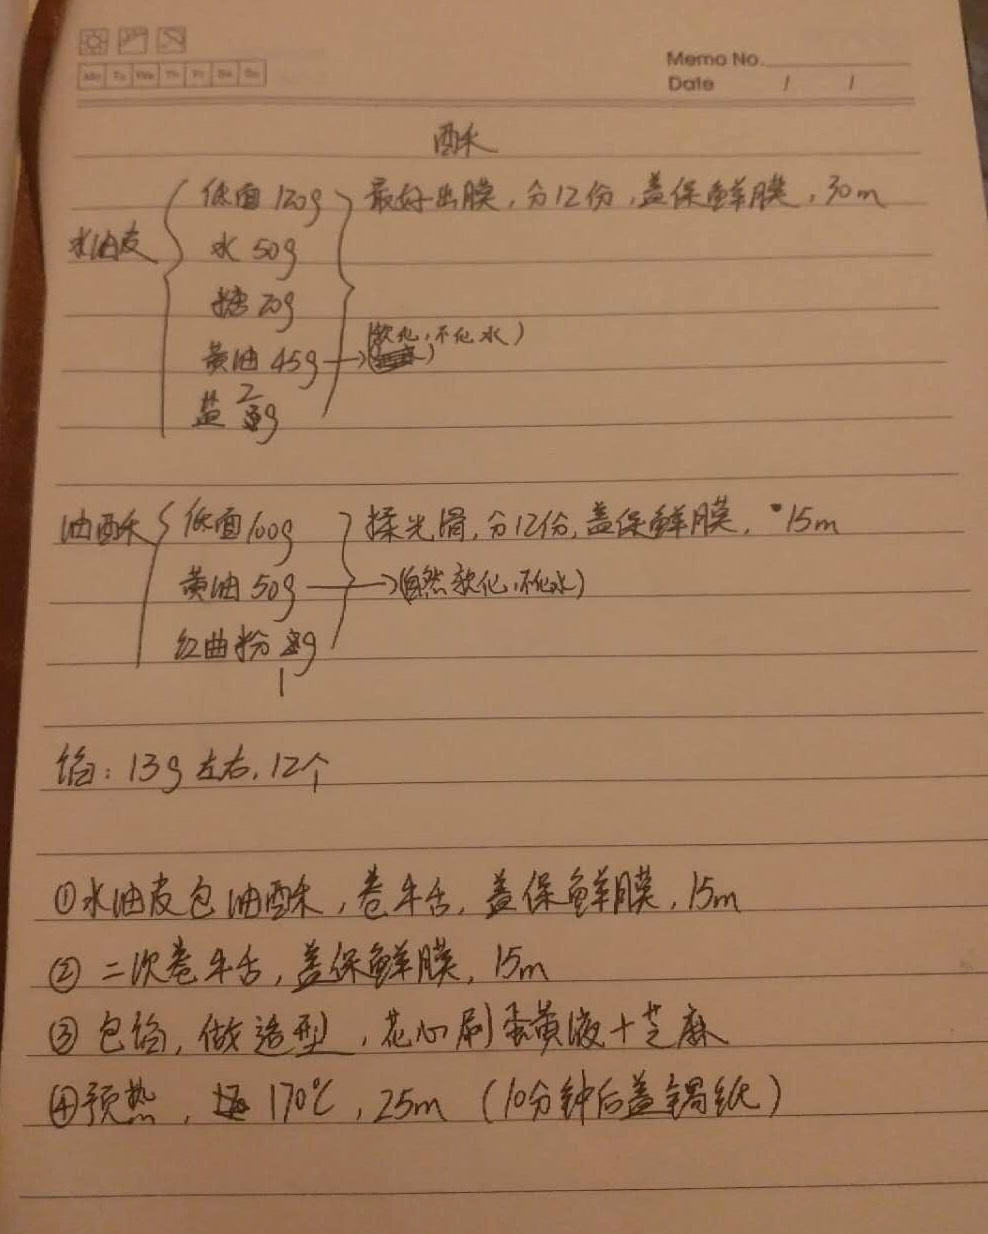 Mo Tu We Th Fr Sa Su
Memo No.
Date / /
酥
水油皮
低面 120g
水 50g
糖 20g
黄油 45g → (软化,不化水)
盐 2g
最好出膜,分12份,盖保鲜膜,30m
油酥
低面 100g
黄油 50g → (自然软化,不化水)
红曲粉 1g
揉光滑,分12份,盖保鲜膜,15m
馅:13g 左右,12个
①水油皮包油酥,卷牛舌,盖保鲜膜,15m
② 二次卷牛舌,盖保鲜膜,15m
③ 包馅,做造型,花心刷蛋黄液+芝麻
④预热,170℃,25m (10分钟后盖锡纸)